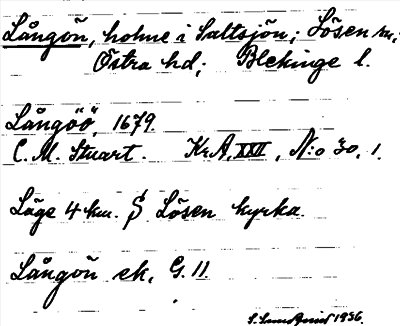 Långön, holme i Saltsjön; Lösen sn,
Östra hd; Blekinge l.
Långöö, 1679.
C. M. Stuart. Kr.A. XXVI, N:o 30, 1.
Läge 4 km. S Lösen kyrka.
Långön ek, G. 11
1936.